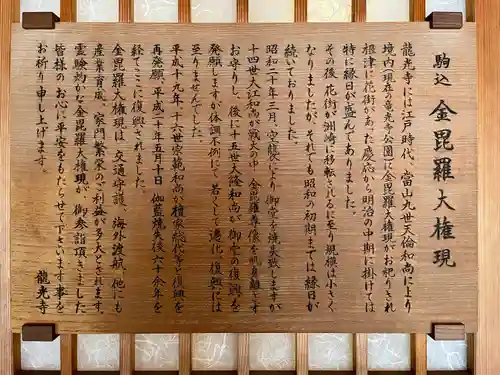 駒込 金毘羅大権現
龍光寺には江戸時代、當山九世天倫和尚により
境内(現在の竜光寺公園)に金毘羅大権現がお祀りされ
根津に花街があった慶応から明治の中期に掛けては
特に縁日が盛んでありました。
その後 花街が洲崎に移転されるに至り規模は小さく
なりましたが、それでも昭和の初期までは縁日が
続いておりました。
昭和二十年三月、空襲により御堂を焼失致しますが
十四世大江和尚が戦火の中 金毘羅尊像を肌身離さず
お守りし、後に十五世大隆和尚が御堂の復興を
発願しますが体調不例にて若くして遷化し復興には
至りませんでした。
平成十九年、十六世家範和尚が檀家総代等と復興を
再発願、平成二十年五月十日 伽藍焼失後六十余年を
経てここに復興されました。
金毘羅大権現は 交通守護、海外渡航、他にも
産業育成、家門繁栄のご利益が多大とされます。
霊験効かな金毘羅大権現が 御参詣頂きました
皆様のお心に平安をもたらせて下さいます事を
お祈り申し上げます。
龍光寺